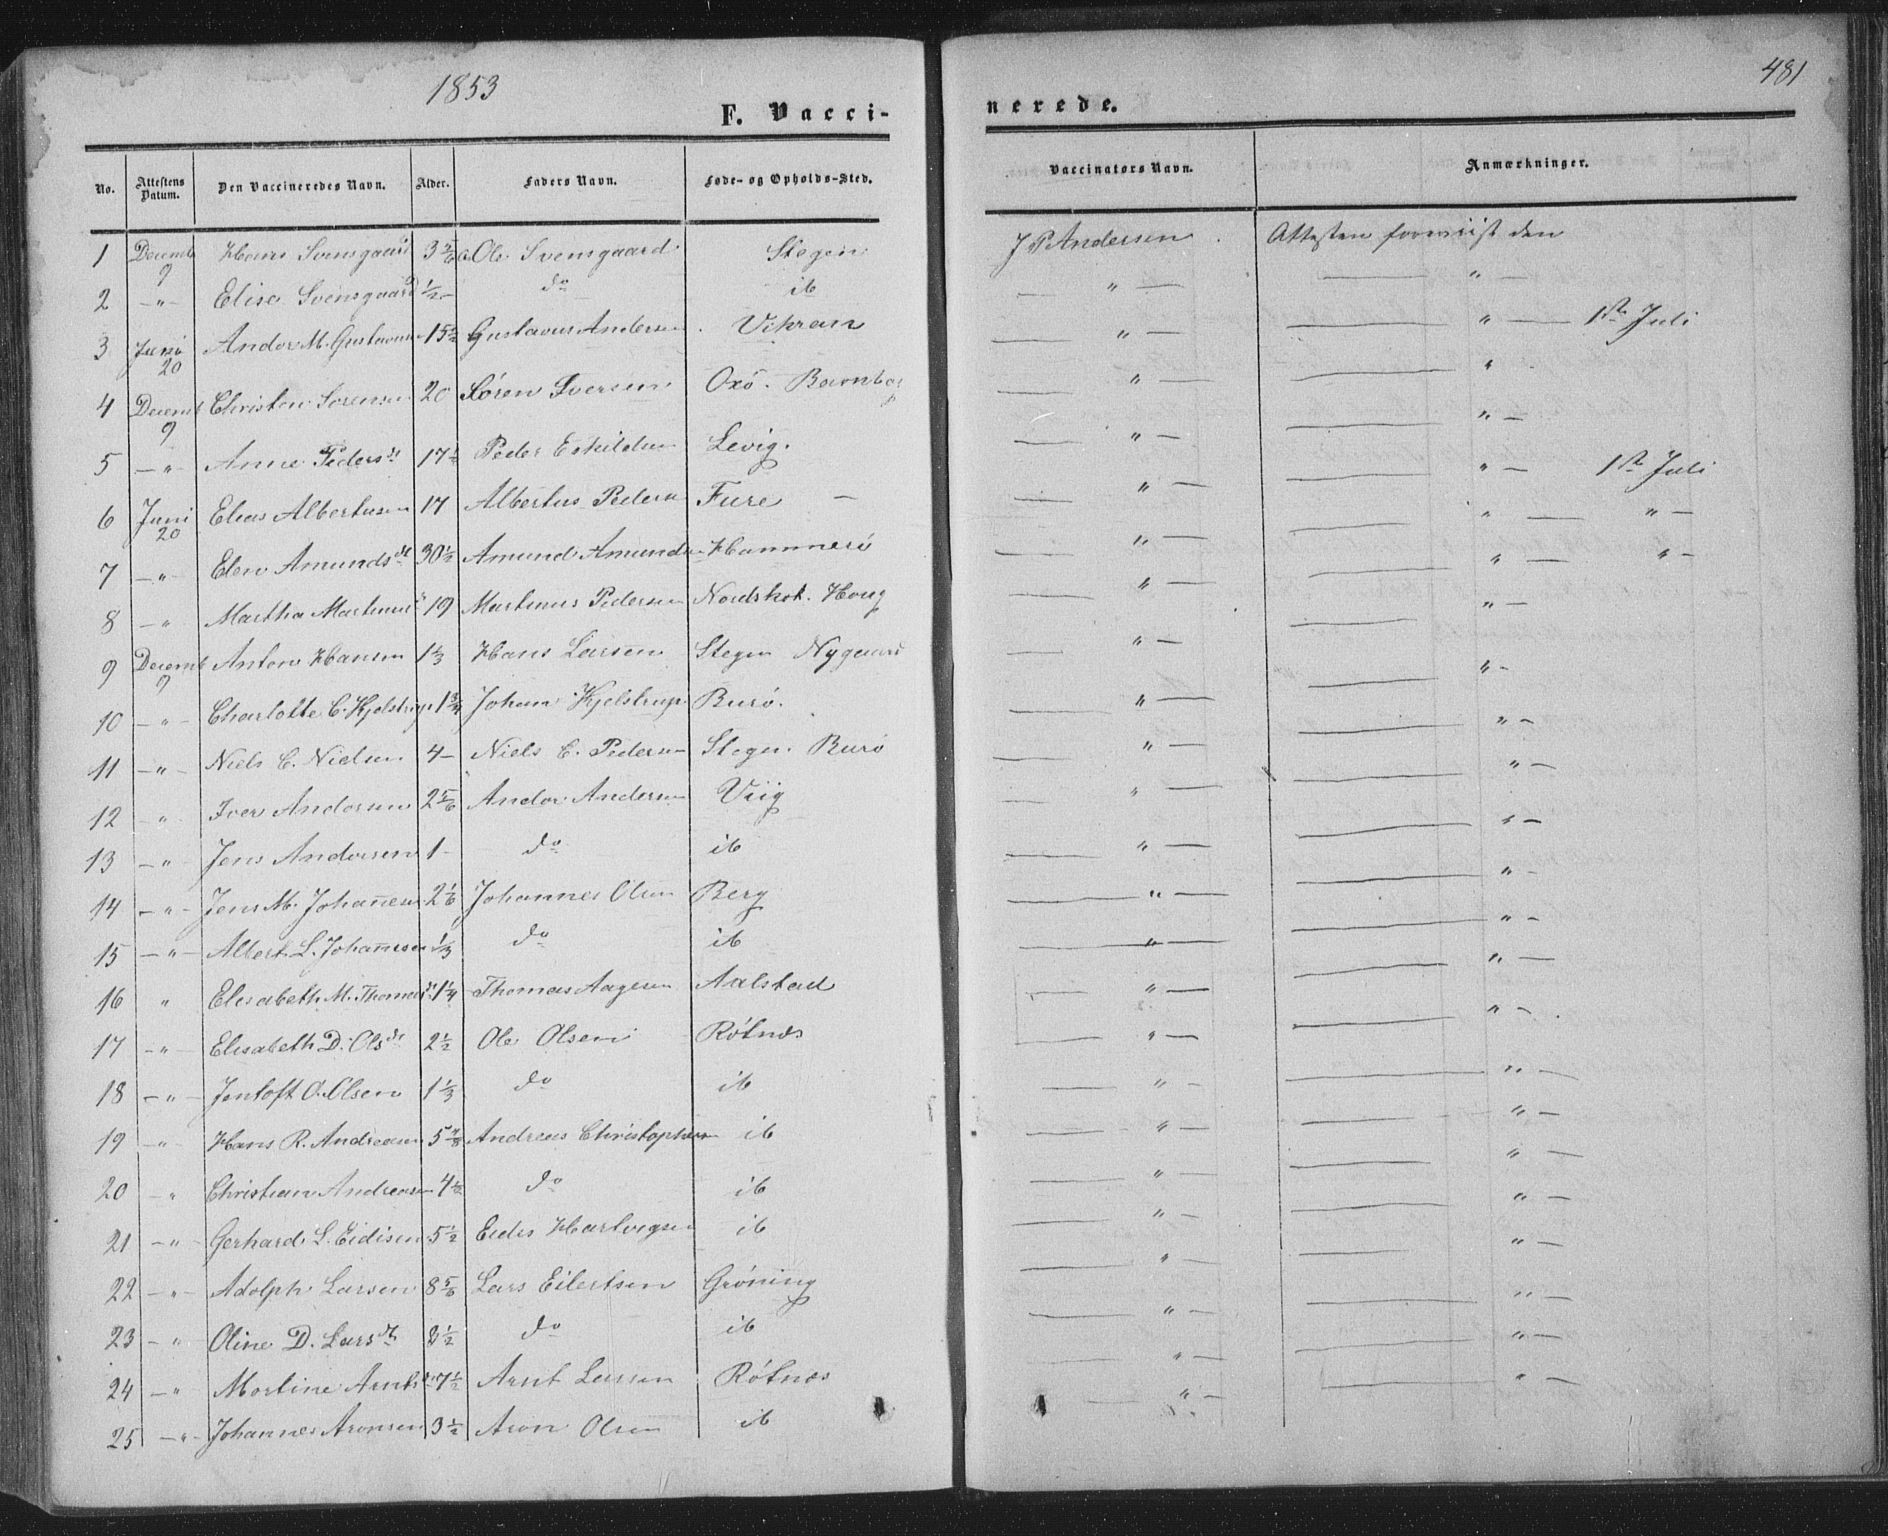 1853
481
F. Vacci-
nerede.
No. Attestens Datum. Den Vaccineredes Navn. Alder. Faders Navn. Føde- og Opholds-Sted. Vaccinators Navn. Anmærkninger.
1 Decemb 9 Hans Svensgaard 3 2/6 Ole Svensgaard Stegen J P Andersen Attesten foreviist den
2 —"— Elise Svensgaard 1/2 do ib —"— —"—
3 Juni 20 Andor M. Gustavus 15 Gustavus Andersen Vikran —"— —"— 1ste Juli
4 Decemb 9 Christen Sørensen 20 Søren Iversen Oxö. —"— "
5 —"— Anne Pedersdt 17 1/2 Peder Eskildsen Levig. —"— "—
6 Juni 20 Elias Albertusen 17 Albertus Pedersen Fure — —"— —"— 1ste Juli
7 —"— Elen Amundsdt 30 1/2 Amund Amundsen Hammerö —"— —"— "—
8 —"— Martha Martinus 19 Martinus Pedersen Nordskot. Houg —"— —"— "—
9 Decemb 9 Anton Hansen 1 1/3 Hans Larsen Stegen Nygaard —"— "—
10 —"— Charlotte C. Kjelstrup 1 3/4 Johan Kjelstrup Burö. —"— "—
11 —"— Niels C. Nielsen 4 — Niels C. Pedersen Stegen. Burö —"— "—
12 " Iver Andorsen 2 5/6 Andor Andersen Viig —"— "—
13 —"— Jens Andorsen 1 — do ib —"— "—
14 —"— Jens M. Johannesen 2 1/6 Johannes Olsen Berg —"— "—
15 —"— Albert L. Johannesen 1/3 do ib —"— "—
16 " Elisabeth M. Thomasdt 1 1/4 Thomas Aagesen Aalstad —"— "—
17 —"— Elisabeth D. Olsdt 2 1/2 Ole Olsen Røtnæs —"— "—
18 —"— Jentoft O. Olsen 1 1/3 do ib —"— "—
19 —"— Hans R. Andreasen 5 Andreas Christophersen ib —"— "—
20 —"— Christian Andreasen 4 1/2 do ib —"— "—
21 —"— Gerhard L. Eidisen 5 1/2 Eidis Hartvigsen ib —"— "—
22 —"— Adolph Larsen 8 5/6 Lars Eilertsen Grøning —"— "—
23 —"— Oline D. Larsdt 3 1/2 do ib —"— "—
24 —"— Martine Arntsdt 7 1/2 Arnt Larsen Røtnæs —"— "—
25 —"— Johannes Aronsen 3 1/2 Aron Olsen ib "— "—